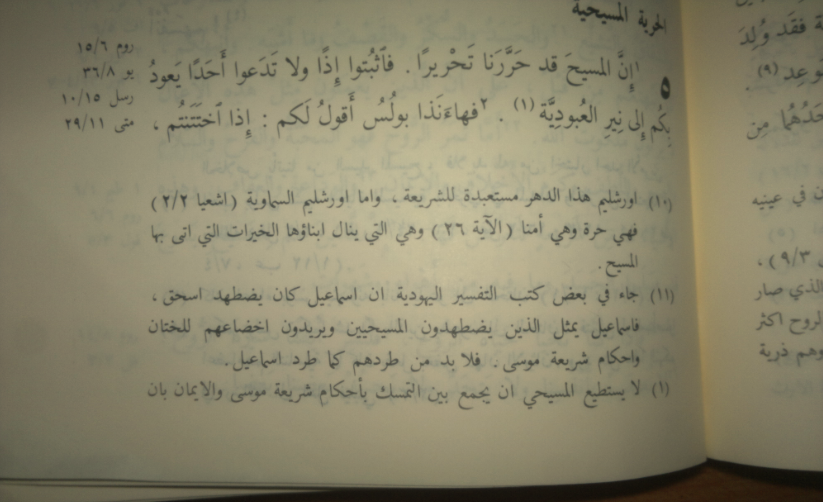 الحرية المسيحية
٥ ١إِنَّ المسيحَ قد حَرَّرَنا تَحْريرًا . فَٱثبُتوا إِذًا ولا تَدَعوا أَحَدًا يَعودُ
بِكُم إِلى نِيرِ العُبودِيَّة (١) . ٢فهاءَنَذا بولُسُ أَقولُ لَكم : إِذا ٱختَتَنتُم ،
روم ١٥/٦
يو ٣٦/٨
رسل ١٠/١٥
متى ٢٩/١١
(١٠) اورشليم هذا الدهر مستعبدة للشريعة ، واما اورشليم السماوية (اشعيا ٢/٢)
فهي حرة وهي أمنا (الآية ٢٦) وهي التي ينال ابناؤها الخيرات التي اتى بها
المسيح .
(١١) جاء في بعض كتب التفسير اليهودية ان اسماعيل كان يضطهد اسحق ،
فاسماعيل يمثل الذين يضطهدون المسيحيين ويريدون اخضاعهم للختان
واحكام شريعة موسى . فلا بد من طردهم كما طرد اسماعيل .
(١) لا يستطيع المسيحي ان يجمع بين التمسك بأحكام شريعة موسى والايمان بان
فقَد وُلِدَ
(٩)
مِن
في عينيه
(٥)
٩/٣) ،
الذي صار
الروح اكثر
وهم ذرية